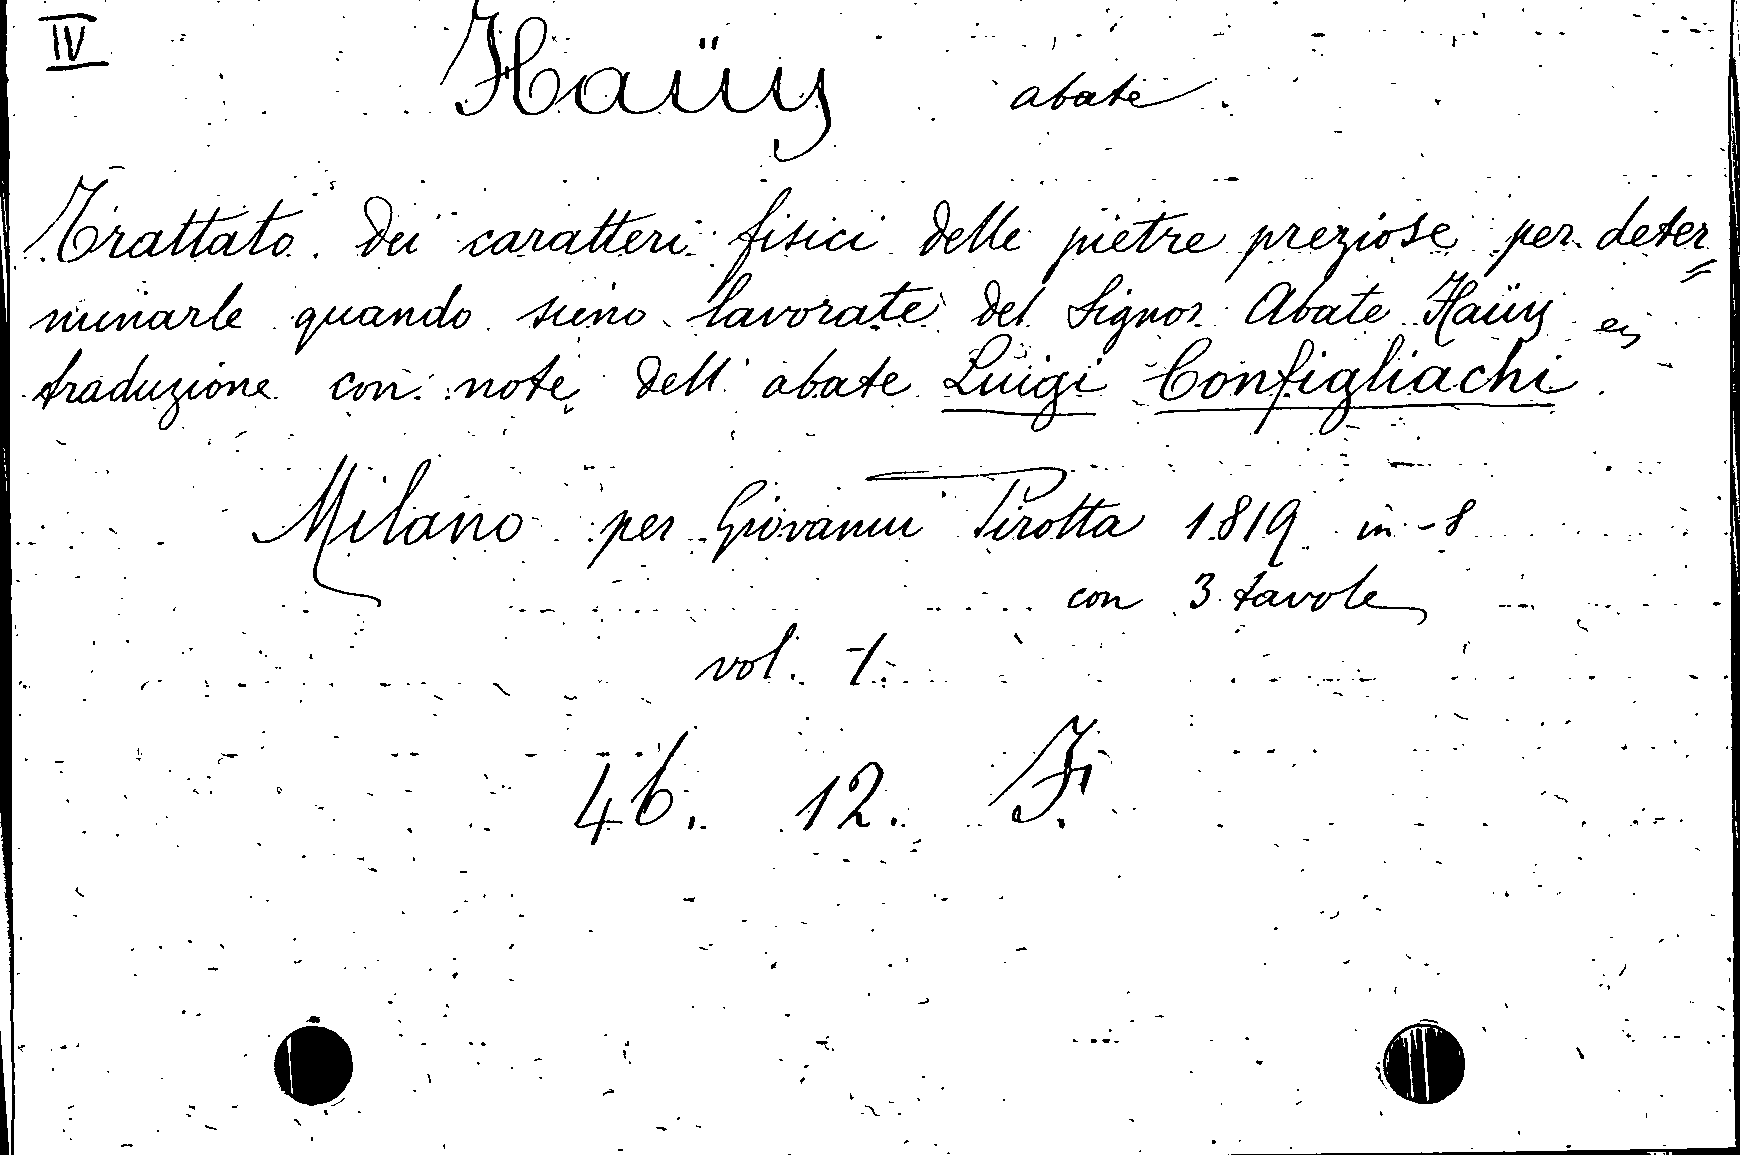 IV
Haüy abate
Trattato dei caratteri fisici delle pietre preziose per deter=
minarle quando sieno lavorate del Signor Abate Haüy
traduzione con note dell' abate Luigi Configliachi.
Milano per Giovanni Pirotta 1819 in-8
con 3 tavole
vol. 1.
46. 12. F.